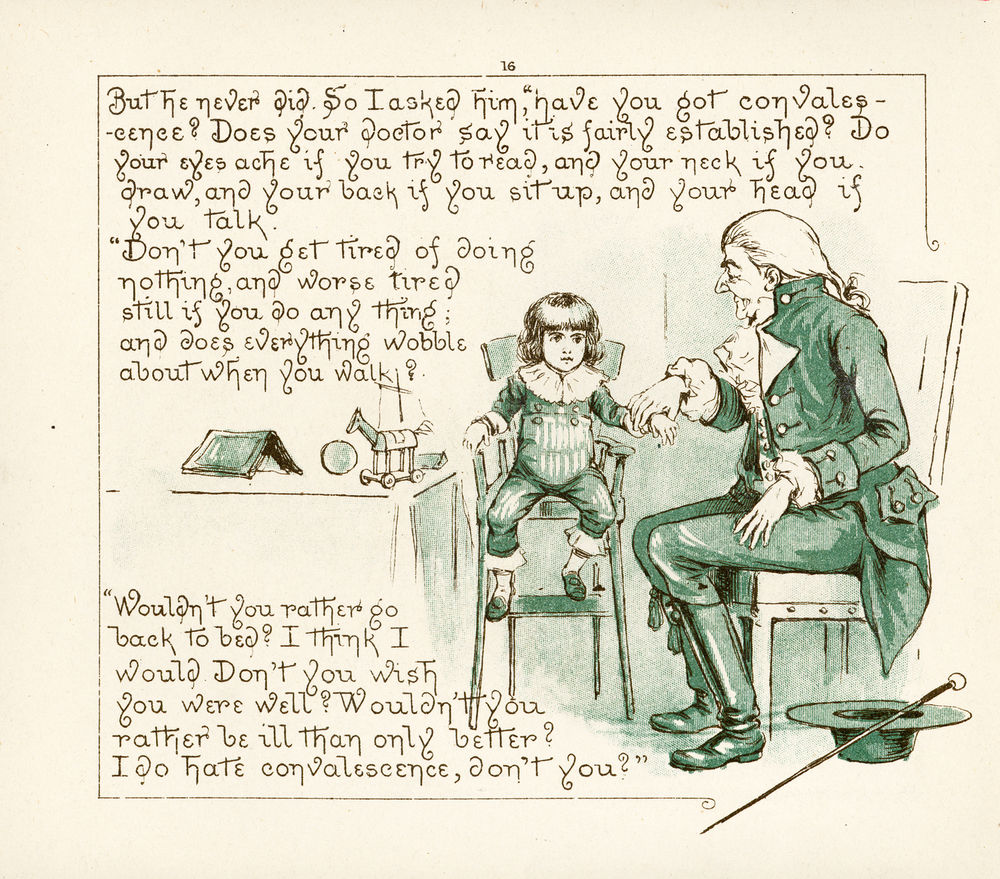 16
But he never did. So I asked him, "have you got convales-
-cence? Does your doctor say it is fairly established? Do
your eyes ache if you try to read, and your neck if you
draw, and your back if you sit up, and your head if
you talk.
"Don't you get tired of doing
nothing, and worse tired
still if you do any thing;
and does everything wobble
about when you walk?
"Wouldn't you rather go
back to bed? I think I
would. Don't you wish
you were well? Wouldn't you
rather be ill than only better?
I do hate convalescence, don't you?"